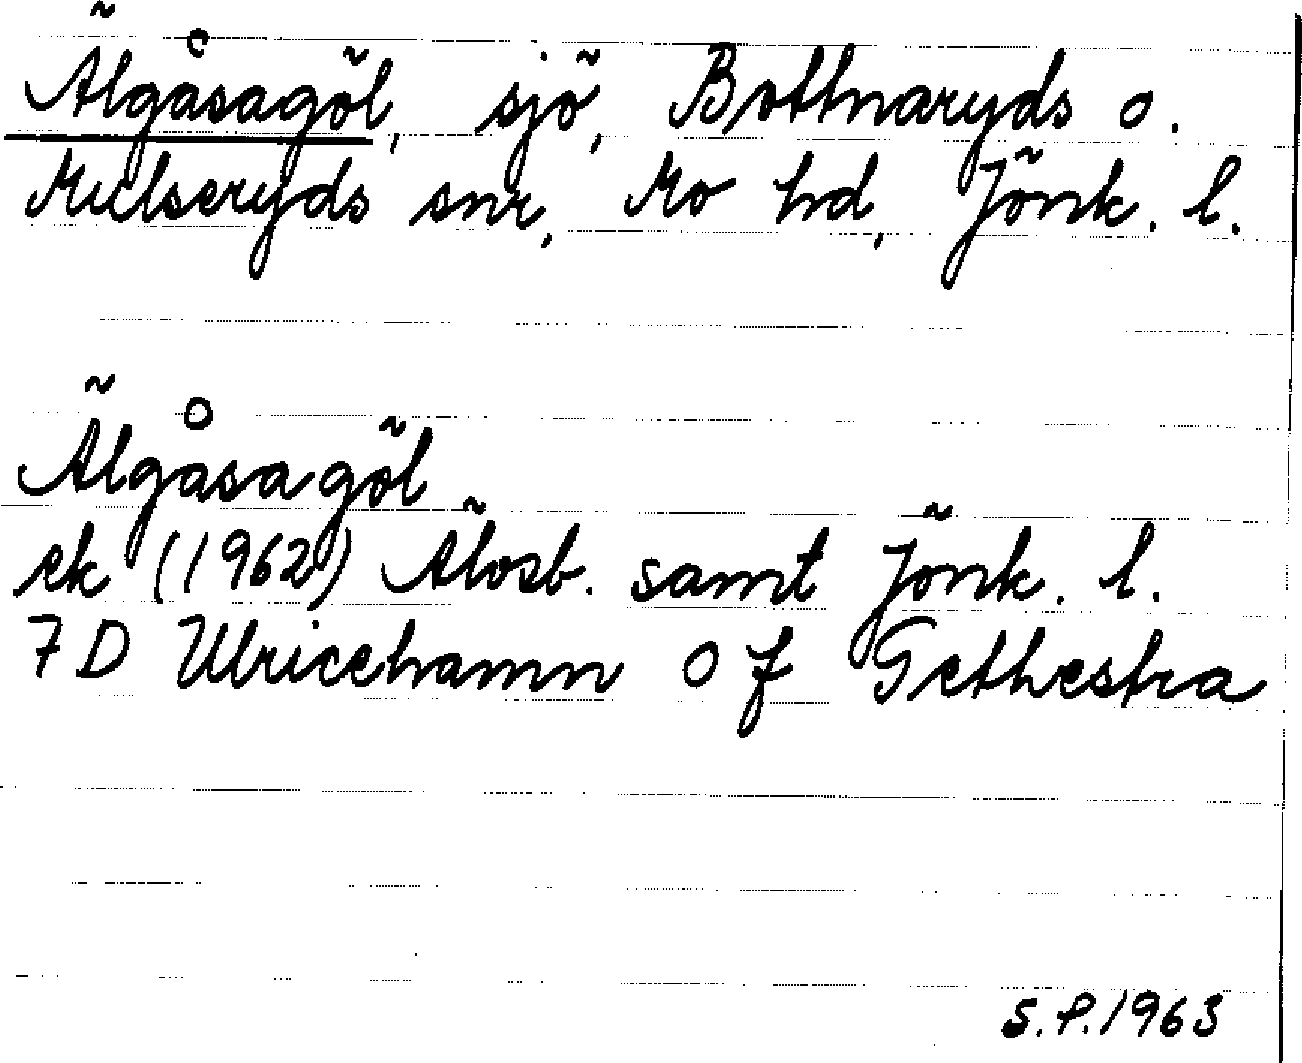 Älgåsagöl, sjö, Bottnaryds o.
Mulseryds snr, Mo hd, Jönk. l.
Älgåsagöl
ek (1962) Älvsb. samt Jönk. l.
7 D Ulricehamn 0 f Gethestra
S.P. 1963